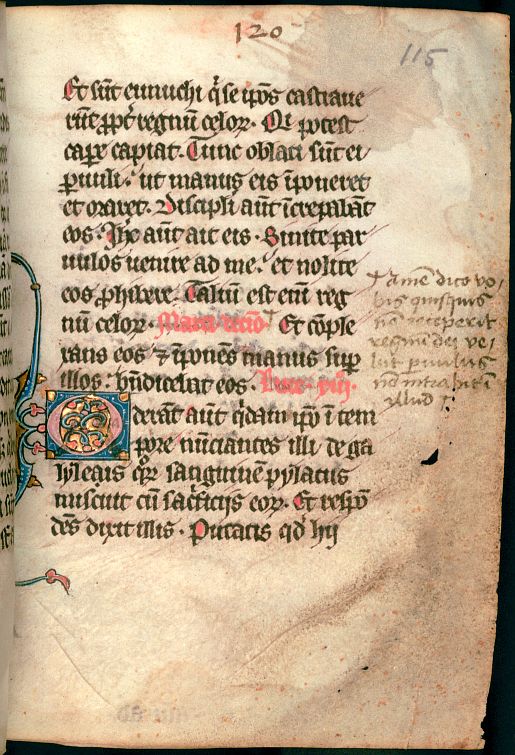 120
115
Et sūt eunuchi q̇ se ip̄os castraue
rūt ꝓpt̄ regnū celoꝝ. Qi potest
cape̱ capiat. Tunc oblati sūt ei
ꝑuuli. ut manus eis īponeret
et oraret. Discipli aūt īcrepabāt
eos. Ihc̄ aūt ait eis. Sinite par
uulos uenire ad me. et nolite
eos ꝓhibere. Taliū est eni̅ reg
nū celoꝝ. Marci decīo Et cōple
tans eos ⁊ īponēs manus sup̱
illos. bn̄dicebat eos. Luce. xiij.
Aderāt aūt q̇dam ip̄o ī tem
pore nūciantes illi de ga
lyleais qoꝝ sanguinē pylatus
miscuit cū sac̓ficijs eoꝝ. Et respō
dēs dixit illis. Putatis qd̓ hij
† amē dico vo
bis quisquis
nō receperit
regnū dei ve
lut ꝑuulus
nō intrabit ī
illud